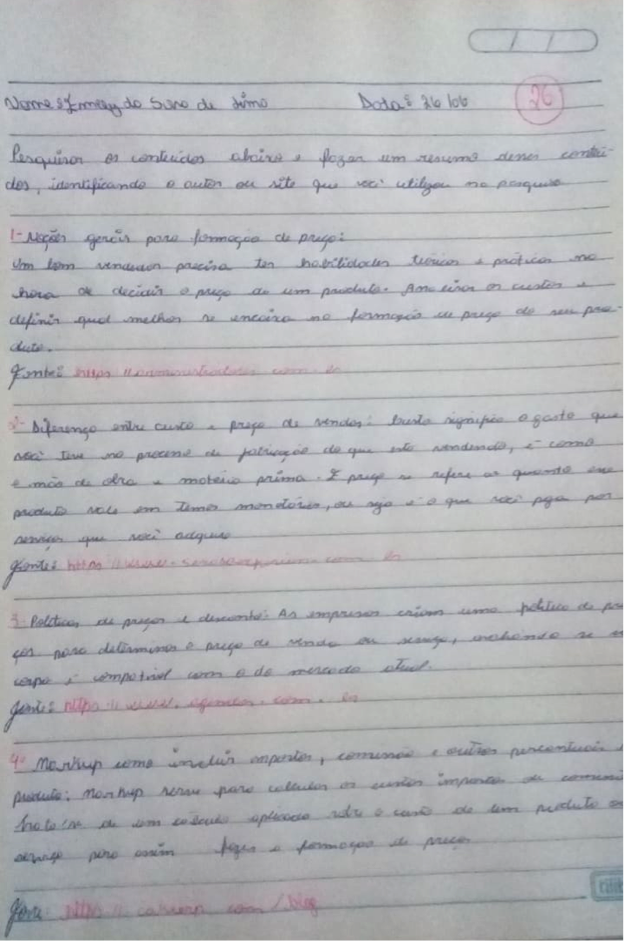 Data: 26/06
26
Pesquisar os conteúdos abaixo e fazer um resumo desses conteú-
dos, identificando o autor ou site que você utilizou na pesquisa
1- Noções gerais para formação de preço:
Um bom vendedor precisa ter habilidades teóricas e práticas na
hora de decidir o preço de um produto. Analisar os custos e
definir qual melhor se encaixa na formação de preço do seu pro-
duto.
Fonte: https
2- Diferença entre custo e preço de vendas: Custo significa o gasto que
você teve no processo de fabricação do que está vendendo, é como
a mão de obra e matéria prima. E preço se refere ao quanto esse
produto vale em termos monetários, ou seja é o que você paga por
serviços que você adquire
Fonte: https
3- Políticas de preços e desconto: As empresas criam uma política de pre
ços para determinar o preço de venda ou serviço, avaliando se
é compatível com o do mercado atual.
Fonte: https
4- Markup como incluir impostos, comissão e outros percentuais
produto: Markup serve para calcular os custos impostos ou
de um cálculo aplicado sobre o custo de um produto
serviço para assim fazer a formação de preços
Fonte: https com/blog